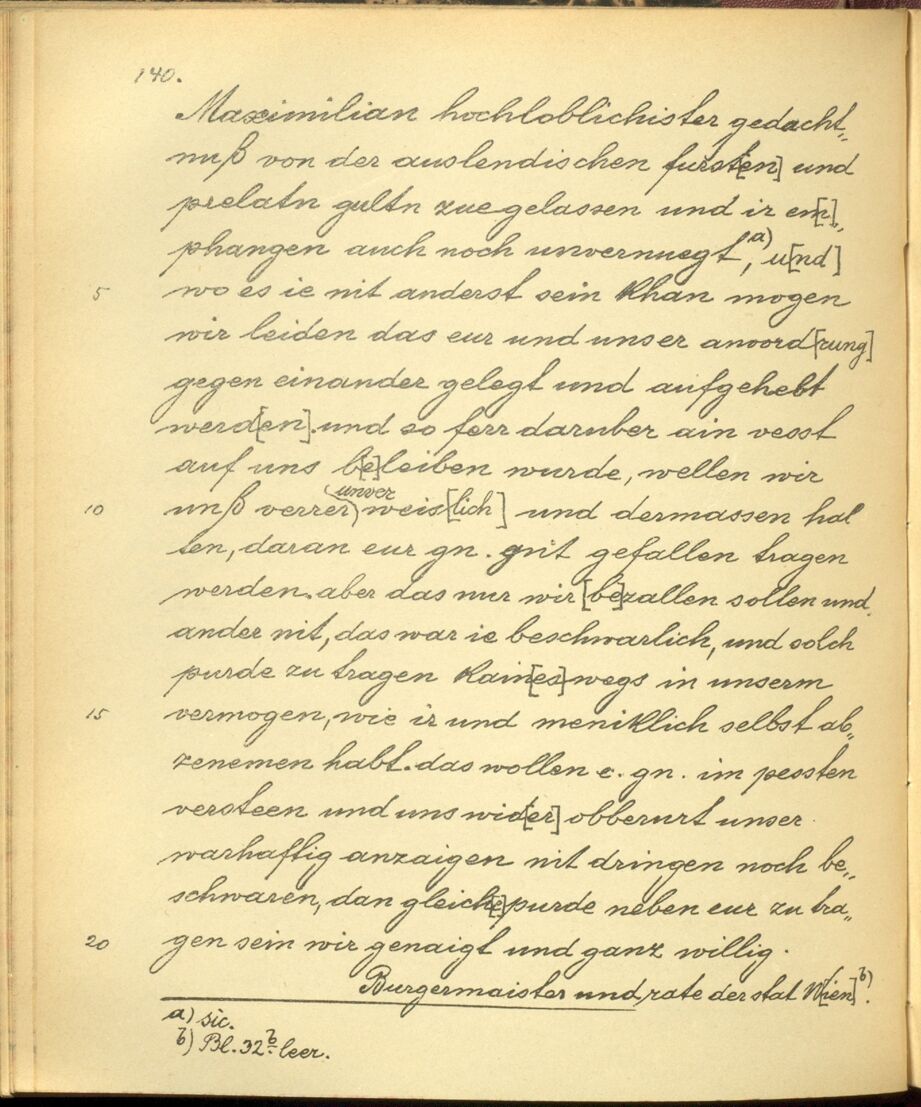 140.
Maximilian hochloblichister gedacht„
nuß von der auslendischen furst[en] und
prelatn gultn zuegelassen und ir em[n]„
phangen auch noch unvernuegt, a) u[nd]
5 wo es ie nit anderst sein khan mogen
wir leiden das eur und unser anvord[rung]
gegen einander gelegt und aufgehebt
werd[en]. und so ferr daruber ain resst
auf uns b[e]leiben wurde, wellen wir
(unver
10 unß verrer) weis[lich] und dermassen hal
ten, daran eur gn. gut gefallen tragen
werden. aber das nur wir [be]zallen sollen und
ander nit, das war ie beschwarlich, und solch
purde zu tragen kain[es]wegs in unserm
15 vermogen, wie ir und meniklich selbst ab„
zenemen habt. das wollen e. gn. im pessten
versteen und uns wid[er] obberurt unser
warhaftig anzaigen nit dringen noch be„
schwaren, dan gleich[e] purde neben eur zu tra„
20 gen sein wir genaigt und ganz willig.
Burgermaister und rate der stat W[ien] b).
a) sic.
b) Bl. 32 b leer.